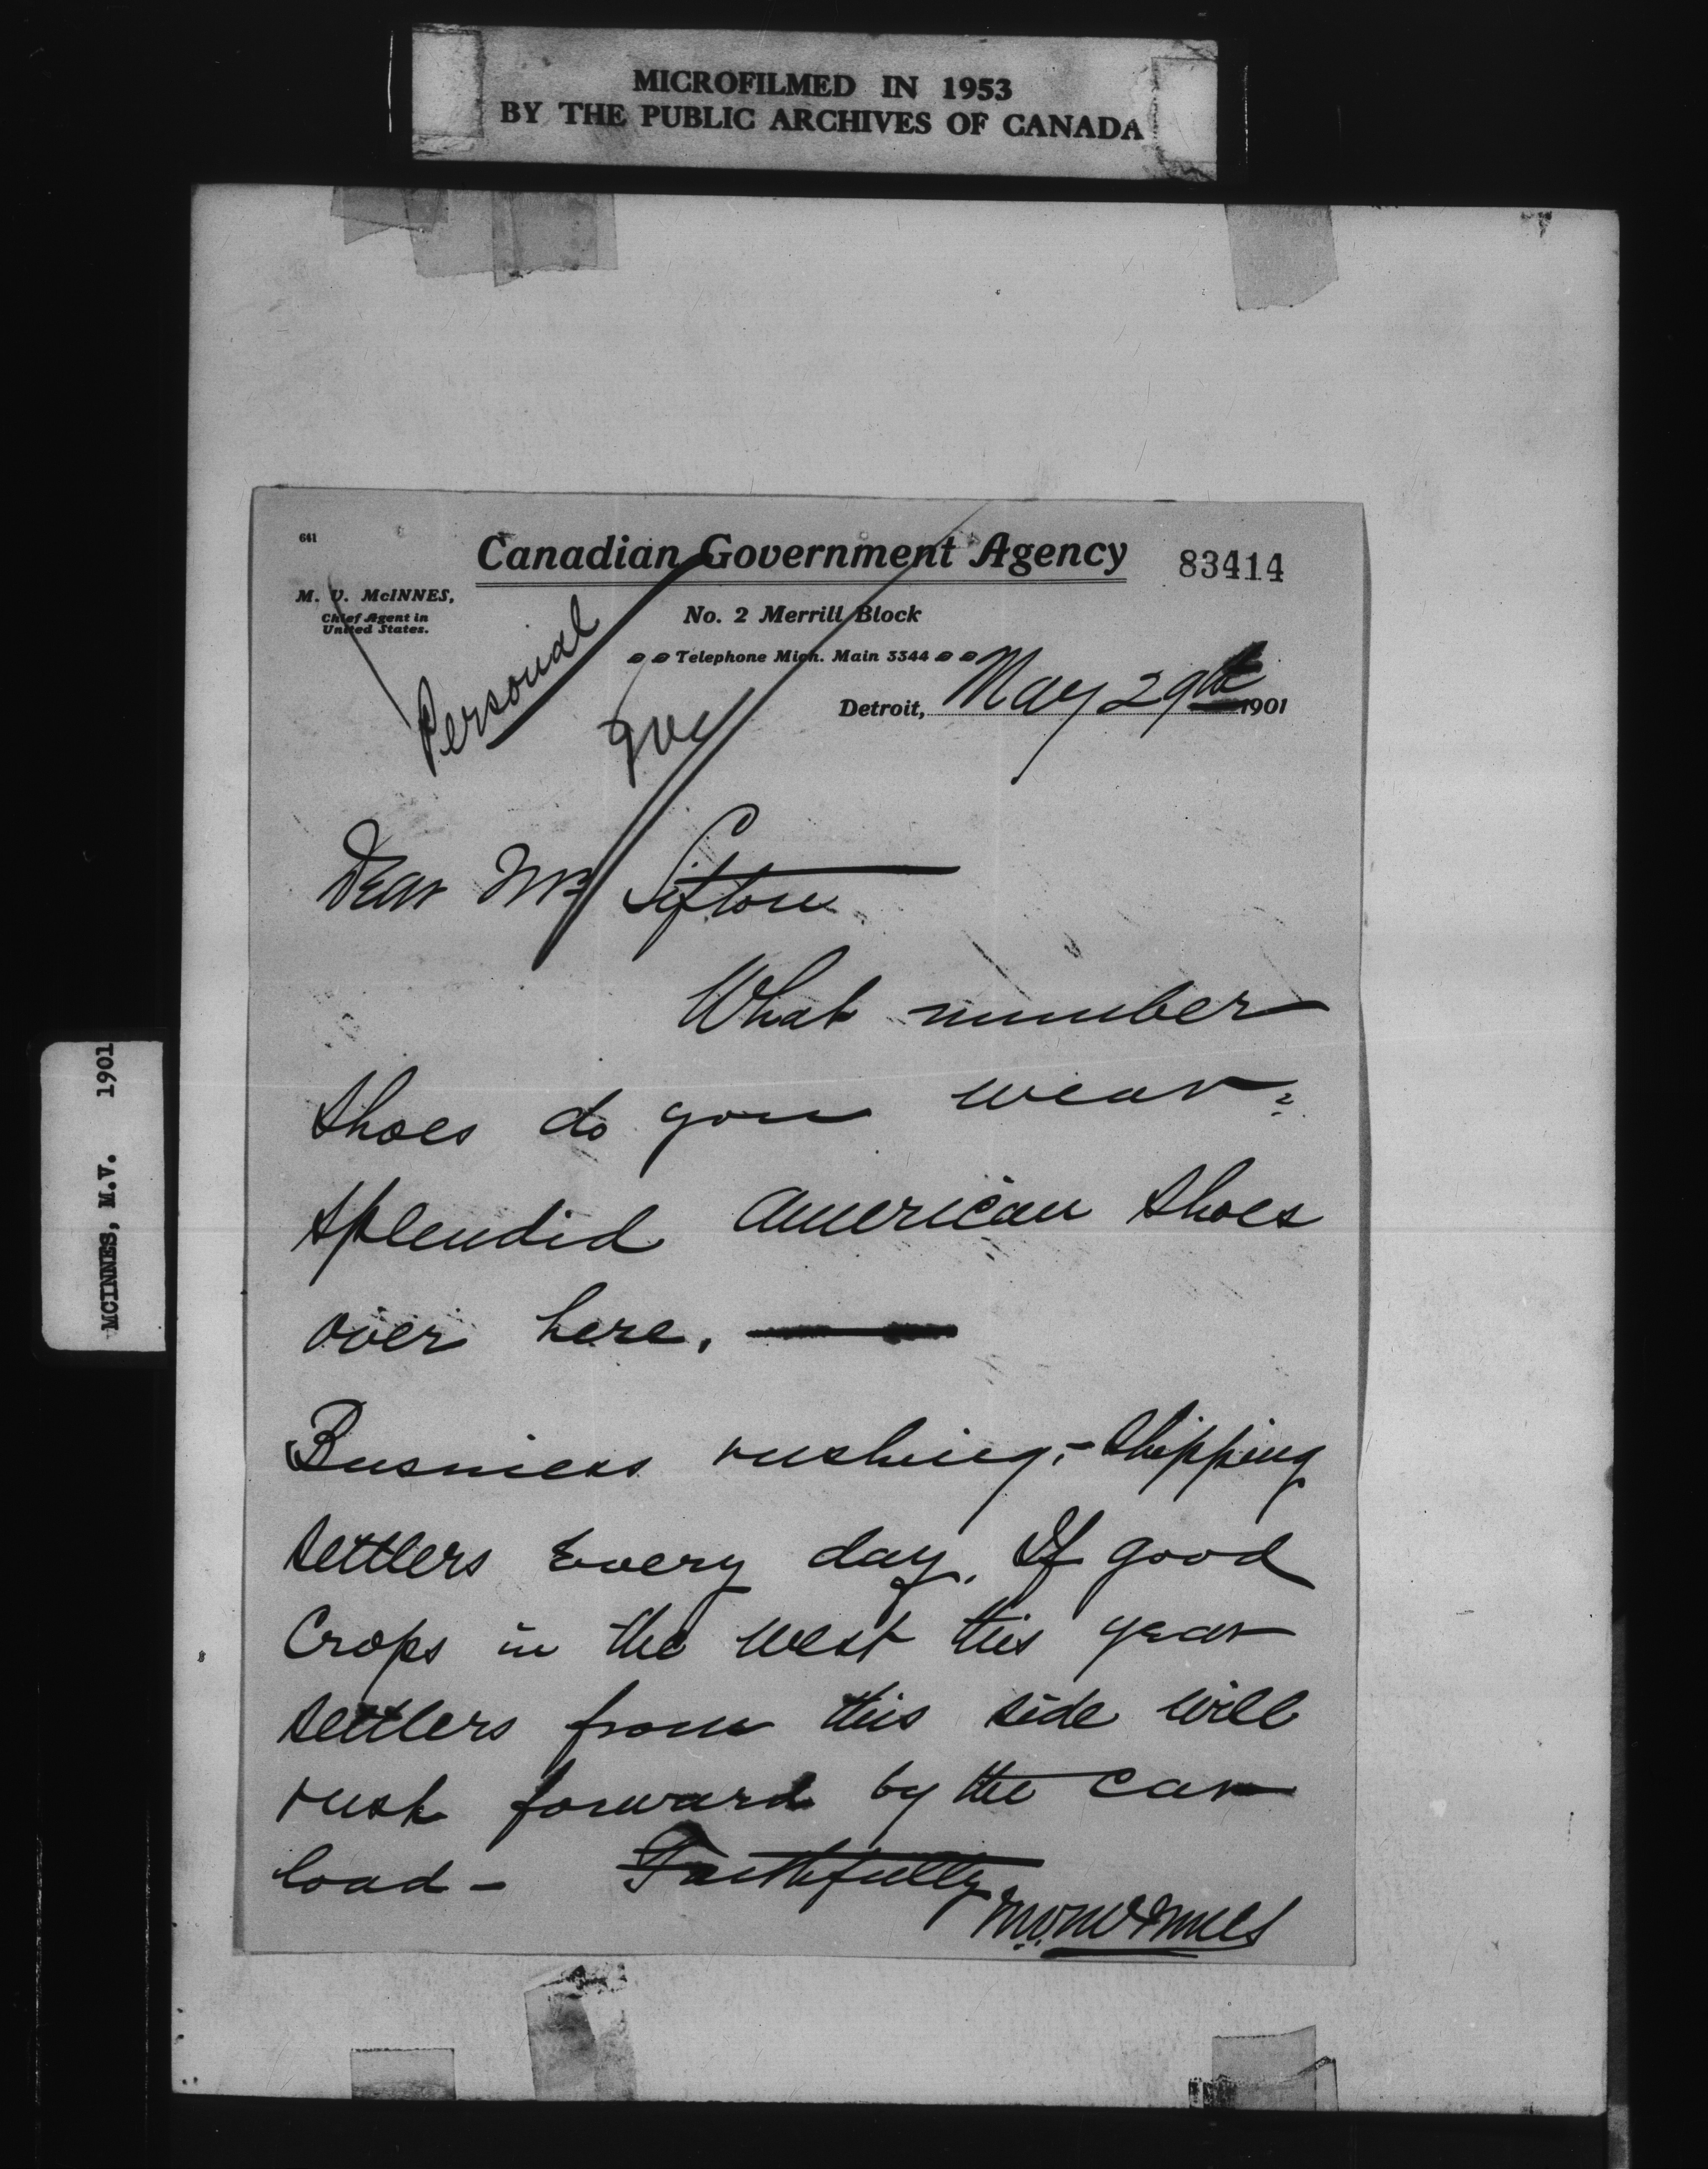 MICROFILMED IN 1953
BY THE PUBLIC ARCHIVES OF CANADA
MCINNES, M.V. 1901
641
Canadian Government Agency 83414
M. V. McINNES,
Chief Agent in
United States.
No. 2 Merrill Block
Telephone Mich. Main 3344
Personal
Detroit, May 29th 1901
Dear Mr Sifton
What number
shoes do you wear?
splendid American shoes
over here.
Business rushing, - shipping
settlers every day. If good
Crops in the west this year
settlers from this side will
rush forward by the car
load -
Faithfully
M.V. McInnes